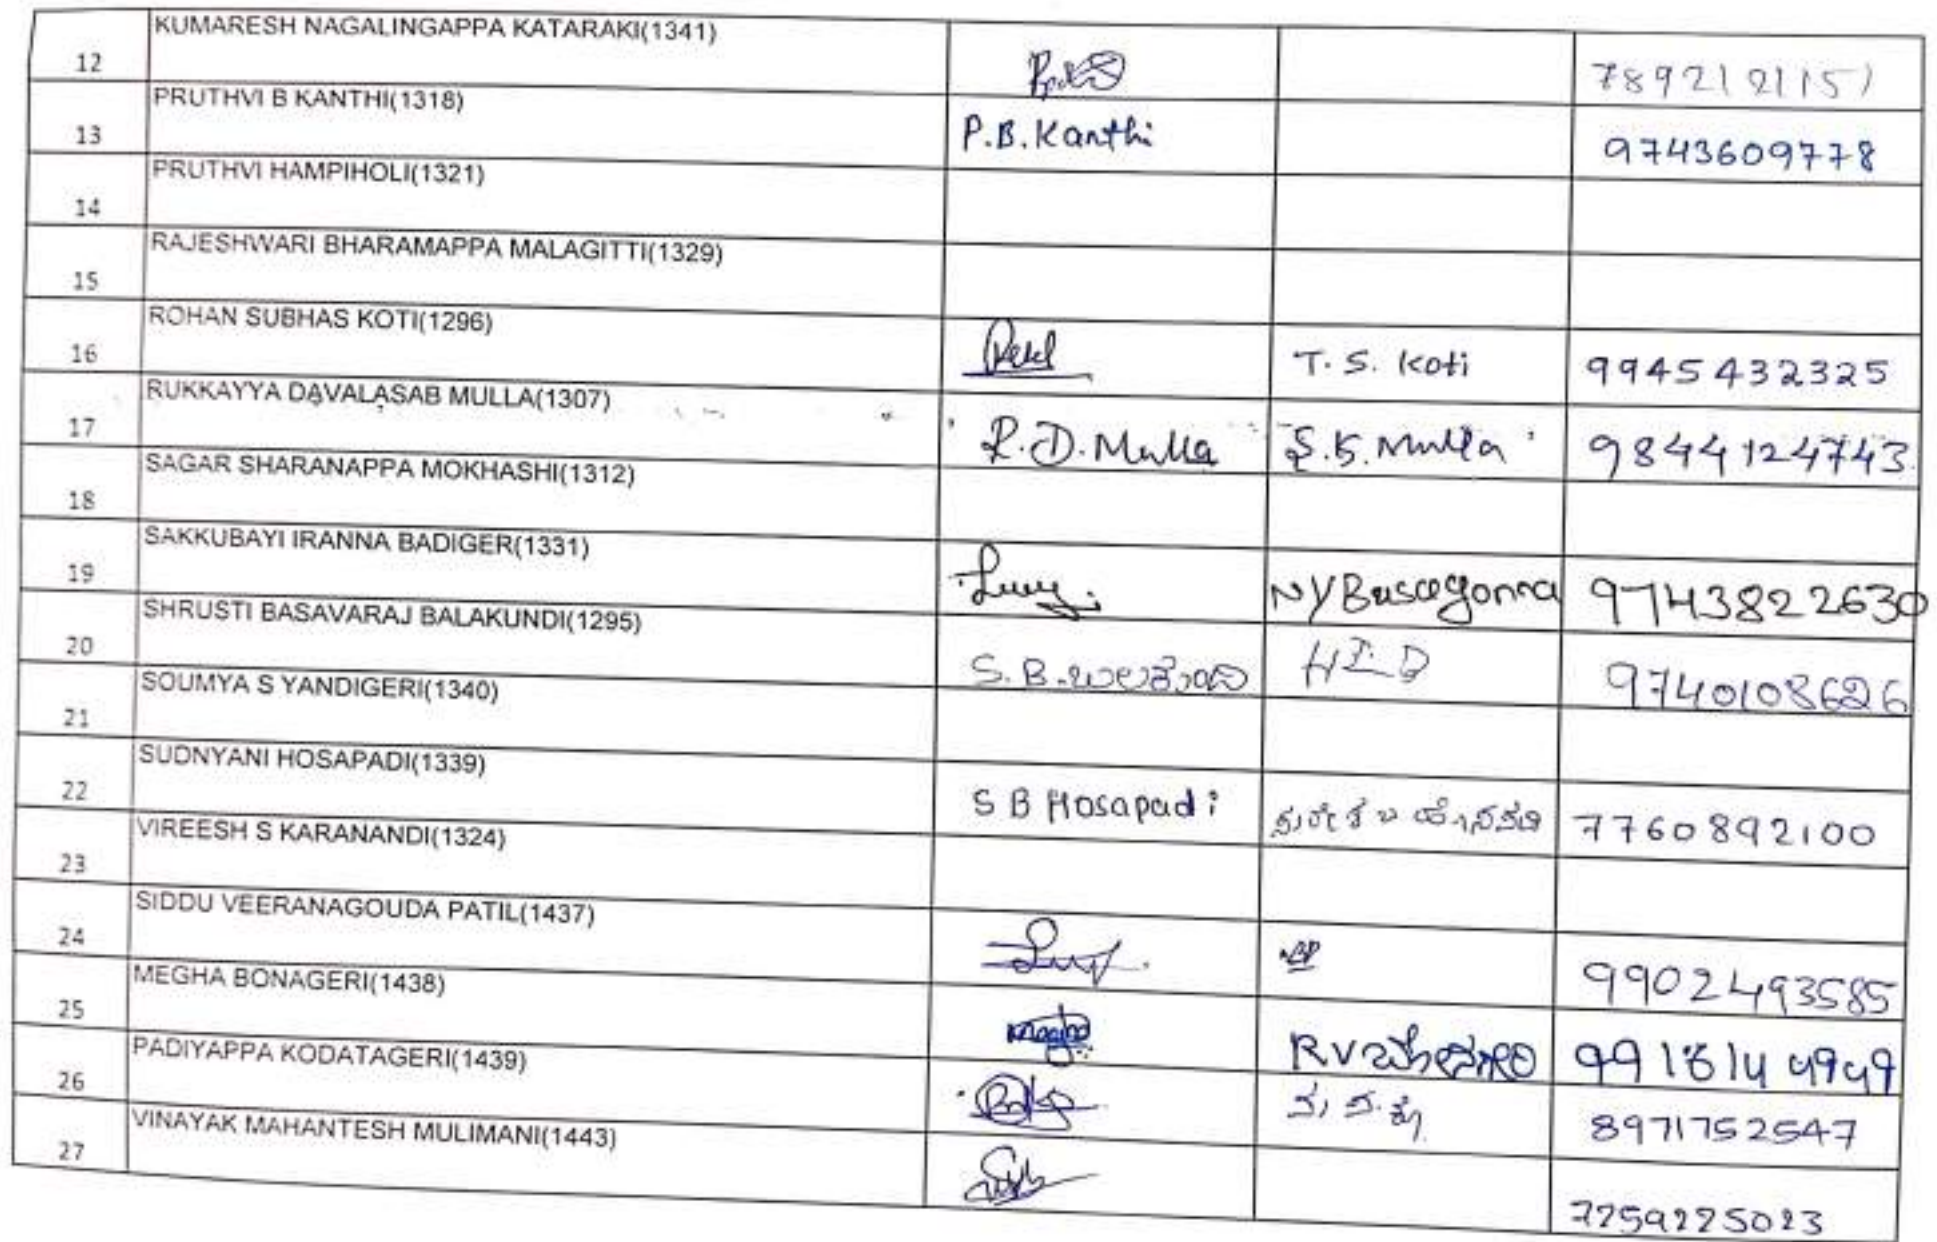 12 KUMARESH NAGALINGAPPA KATARAKI(1341) 7892121151
13 PRUTHVI B KANTHI(1318) P.B.Kanthi 9743609778
14 PRUTHVI HAMPIHOLI(1321)
15 RAJESHWARI BHARAMAPPA MALAGITTI(1329)
16 ROHAN SUBHAS KOTI(1296) T. S. Koti 9945432325
17 RUKKAYYA DAVALASAB MULLA(1307) R.D.Mulla S.K.Mulla 9844124743
18 SAGAR SHARANAPPA MOKHASHI(1312)
19 SAKKUBAYI IRANNA BADIGER(1331) 9743822630
20 SHRUSTI BASAVARAJ BALAKUNDI(1295) S.B.ಬಲಕುಂದಿ 9740108626
21 SOUMYA S YANDIGERI(1340)
22 SUDNYANI HOSAPADI(1339) S B Hosapadi 7760892100
23 VIREESH S KARANANDI(1324)
24 SIDDU VEERANAGOUDA PATIL(1437) 9902493585
25 MEGHA BONAGERI(1438) Megha RV
26 PADIYAPPA KODATAGERI(1439) 8971752547
27 VINAYAK MAHANTESH MULIMANI(1443) 7259225023